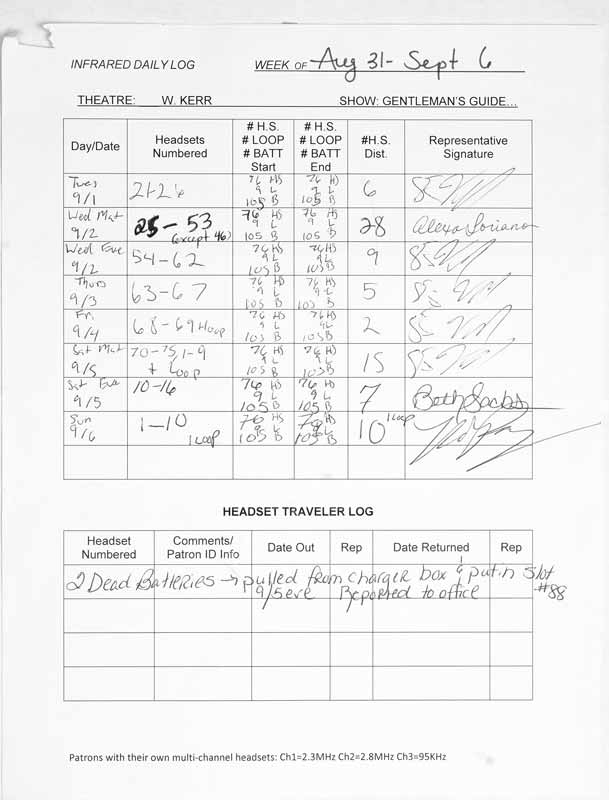 INFRARED DAILY LOG WEEK OF Aug 31 - Sept 6
THEATRE: W. KERR SHOW: GENTLEMAN'S GUIDE...
Day/Date
Headsets
Numbered
# H.S.
# LOOP
# BATT
Start
# H.S.
# LOOP
# BATT
End
#H.S.
Dist.
Representative
Signature
Tues
9/1
21-26
76 HS
9 L
105 B
76 HS
9 L
105 B
6
Wed Mat
9/2
25-53
(except 46)
76 HS
9 L
105 B
76 HS
9 L
105 B
28
Alexa Soriano
Wed Eve
9/2
54-62
76 HS
9 L
105 B
76 HS
9 L
105 B
9
Thurs
9/3
63-67
76 HS
9 L
105 B
76 HS
9 L
105 B
5
Fri
9/4
68-69 + loop
76 HS
9 L
105 B
76 HS
9 L
105 B
2
Sat Mat
9/5
70-75, 1-9
+ Loop
76 HS
9 L
105 B
76 HS
9 L
105 B
15
Sat Eve
9/5
10-16
76 HS
9 L
105 B
76 HS
9 L
105 B
7
Beth Sacks
Sun
9/6
1-10
1 Loop
76 HS
9 L
105 B
76 HS
9 L
105 B
10 1 Loop
HEADSET TRAVELER LOG
Headset
Numbered
Comments/
Patron ID Info
Date Out
Rep
Date Returned
Rep
2 Dead Batteries → pulled from charger box & put in slot
#88
9/5 eve Reported to office
Patrons with their own multi-channel headsets: Ch1=2.3MHz Ch2=2.8MHz Ch3=95KHz